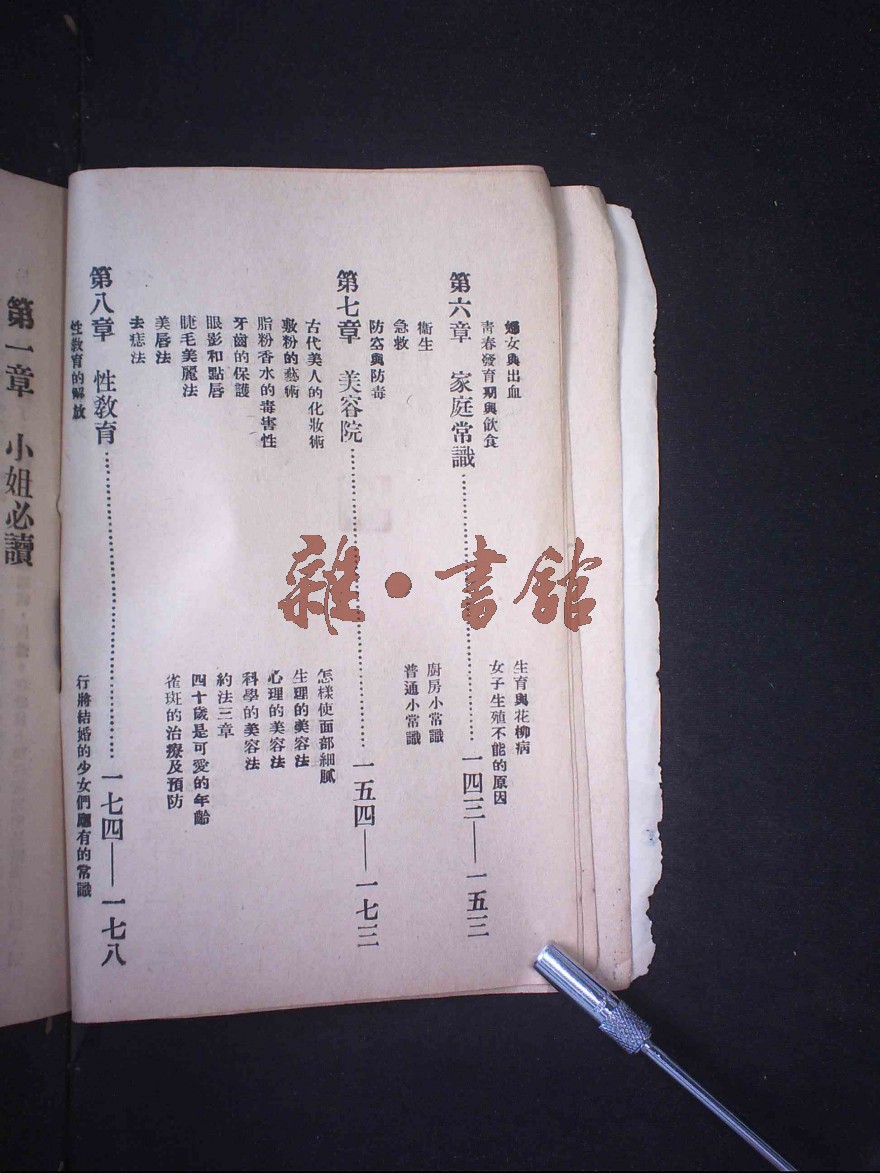 婦女與出血
生育與花柳病
青春發育期與飲食
女子生殖不能的原因
第六章 家庭常識……一四三—一五三
衞生
廚房小常識
急救
普通小常識
防空與防毒
第七章 美容院……一五四—一七三
古代美人的化妝術
怎樣使面部細膩
敷粉的藝術
生理的美容法
脂粉香水的毒害性
心理的美容法
牙齒的保護
科學的美容法
眼影和點唇
約法三章
睫毛美麗法
四十歲是可愛的年齡
美唇法
雀斑的治療及預防
去痣法
第八章 性教育……一七四—一七八
性教育的解放
行將結婚的少女們應有的常識
第一章 小姐必讀
雜·書館